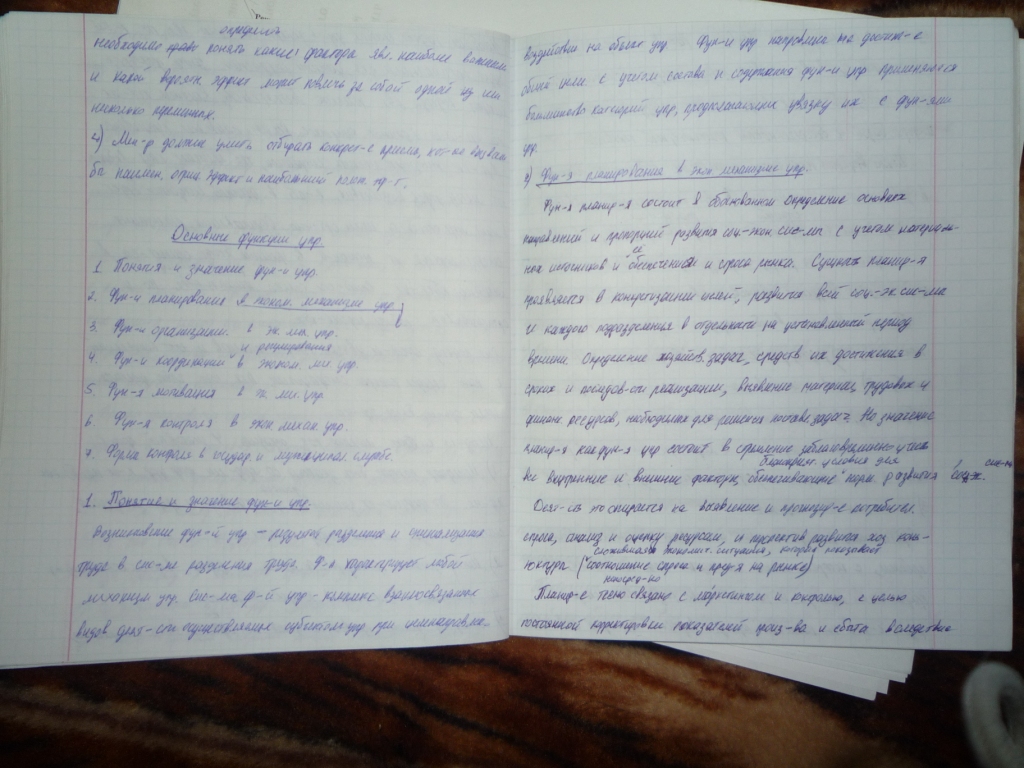 определить
необходимо право понять какие факторы явл. наиболее важными
и какой вероятн. эффект может повлечь за собой одной из них
несколько переменных.
4) Мен-р должен уметь отбирать конкрет-е приемы, кот-ые вызвали
бы наимен. отриц. эффект и наибольший полож. рез-т.
Основные функции упр.
1. Понятия и значение фун-й упр.
2. Фун-и планирования в эконом. механизме упр.
3. Фун-и организации в эк. мех. упр.
и регулирования
4. Фун-и координации в эконом. мех. упр.
5. Фун-я мотивация в эк. мех. упр.
6 Фун-я контроля в экон механ. упр.
7. Формы контроля в государ и муниципал. службе.
1. Понятие и значение фун-й упр.
Возникновение фун-й упр – результат разделения и специализации
труда в сис-ме разделения труда. Ф-и характеризует любой
механизм упр. Сис-ма ф-й упр - комплекс взаимосвязанных
видов деят-сти осуществляемых субъектом упр при целенаправлен.
воздействии на объект упр. Фун-и упр направлены на достиж-е
общей цели с учетом состава и содержания фун-и упр применяются
большинство категорий упр, предполагающих увязку их с фун-ями
упр.
2) Фун-я планирования в экон механизме упр.
Фун-я планир-я состоит в обоснованном определение основных
направлений и пропорций развития соц-экон сис-мы с учетом материаль-
ных источников и её обеспечения и спроса рынка. Сущность планир-я
проявляется в конкретизации целей, развития всей соц.-эк. сис-мы
и каждого подразделения в отдельности на установленный период
времени. Определение хозяйств. задач, средств их достижения в
сроках и последов-сти реализации, выявление материал, трудовых и
финанс ресурсов, необходимых для решения поставл. задач. Но значение
планир-я как фун-я упр состоит в стремление заблаговременно учесть
все внутренние и внешние факторы, обеспечивающие благоприят. условия для норм. развития соц-эк. сис-мы
Деят-сть по опирается на выявление и прогнозир-е потребител.
спроса, анализ и оценку ресурсам, и перспектив развития хоз конъ-
юктуры (сложившаяся экономич. ситуация, которая показывает соотношение спроса и пред-я на рынке)
непосред-но
Планир-е тесно связано с маркетингом и контролю, с целью
постоянной корректировки показателей произ-ва и сбыта вследствие